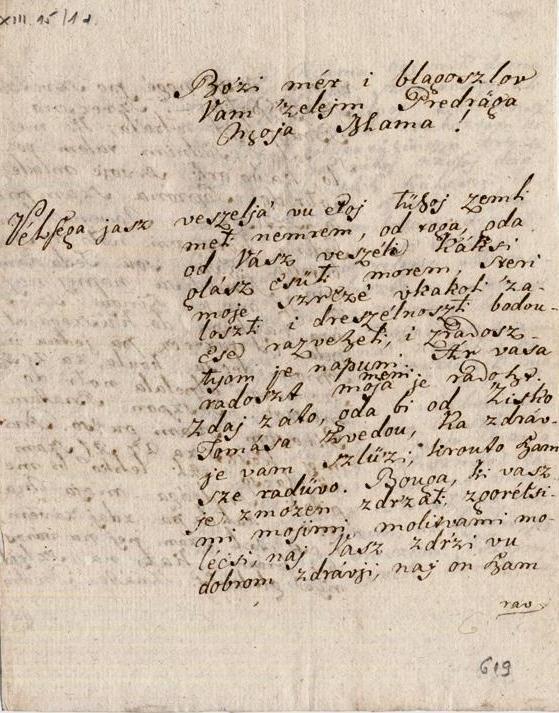 XIII. 15/1 d.
Bo'zi mér i blagoszlov
Vam 'zelejm Predrága
Moja Mama!
Vékſega jasz veszeljá vu etoj tühoj zemli
met nemrem, od toga, oda
od Vász veszéli káksi
glász csüti morem, steri
moje szrczé vkákoti 'za-
loszti i dreszélnoszti bodou-
cse razve'zeti, i zrádosz-
tjom je napuni. Ár vasa
radoszt moja je radoszt.
Zdaj záto, oda bi od Zisko
Tomása zvedou, ka zdráv-
je vam szlü'zi, krouto szam
sze radüvo. Bouga, ki vasz
je zmo'zen zdr'zat, zgorétsi-
mi mojimi molitvami mo-
lécsi, naj Vász zdr'zi vu
dobrom zdrávji, naj on szam
rav
619